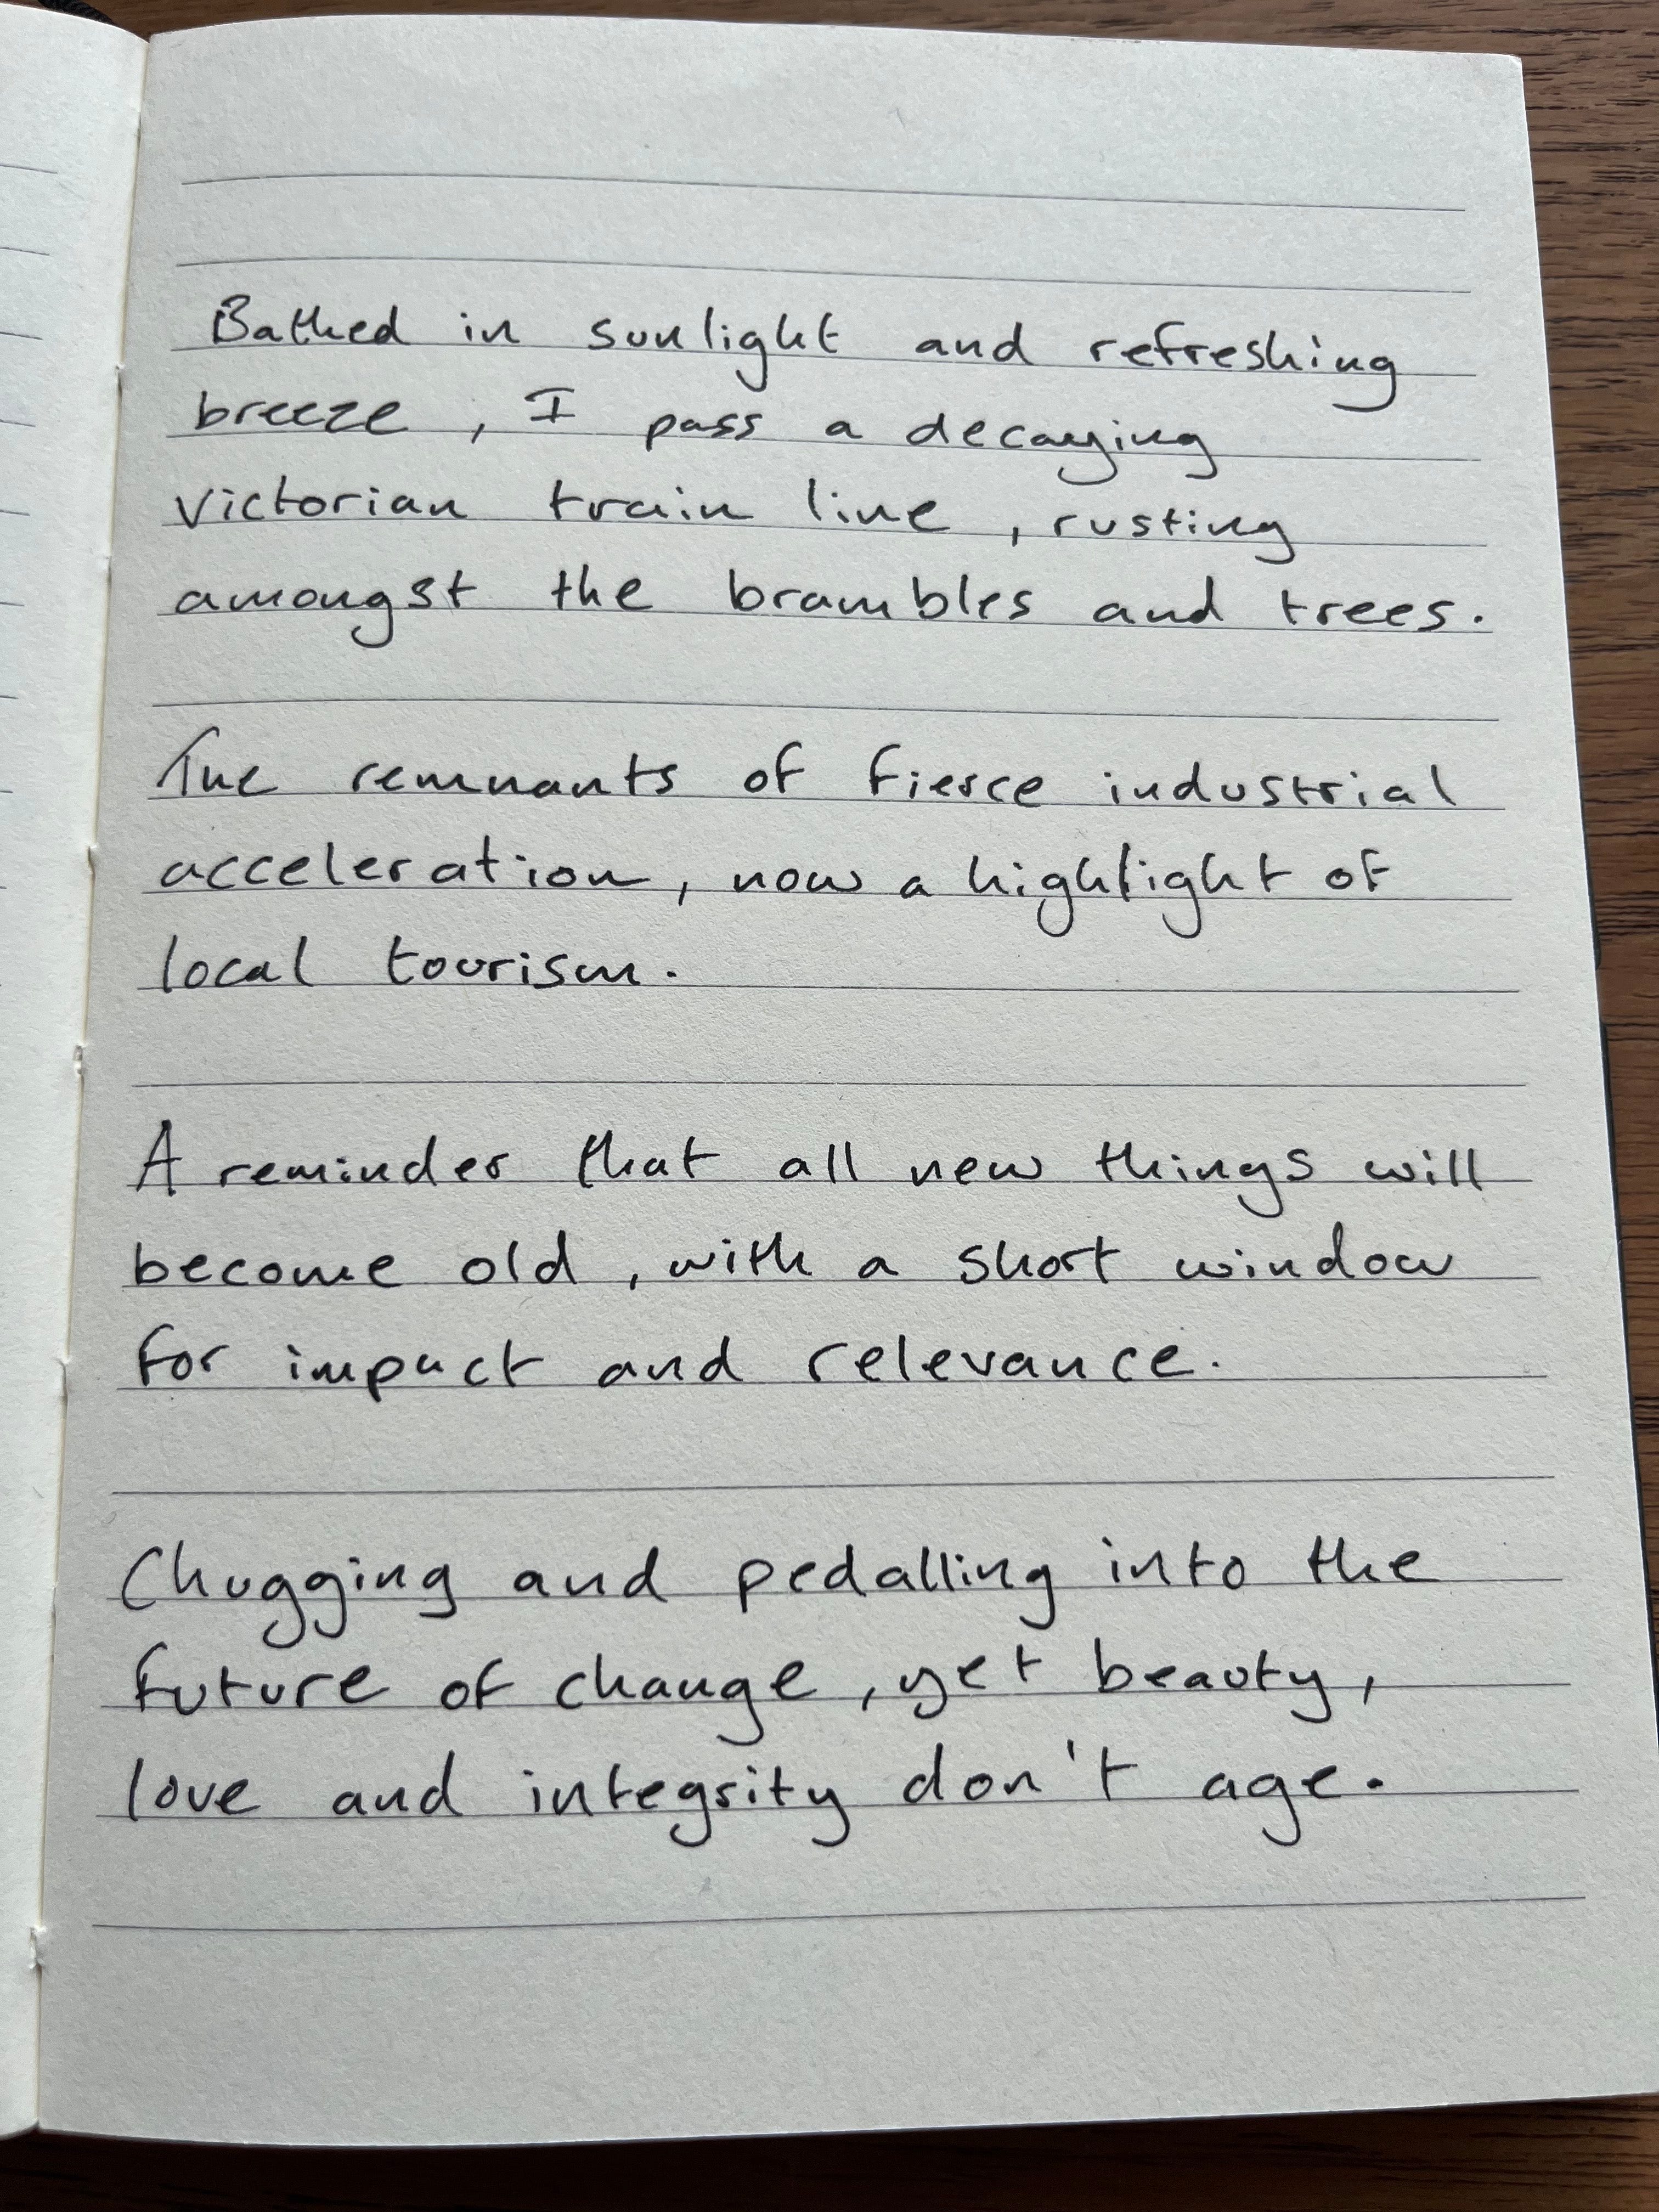 Bathed in sunlight and refreshing
breeze, I pass a decaying
victorian train line, rusting
amongst the brambles and trees.
The remnants of fierce industrial
acceleration, now a highlight of
local tourism.
A reminder that all new things will
become old, with a short window
for impact and relevance.
Chugging and pedalling into the
future of change, yet beauty,
love and integrity don't age.